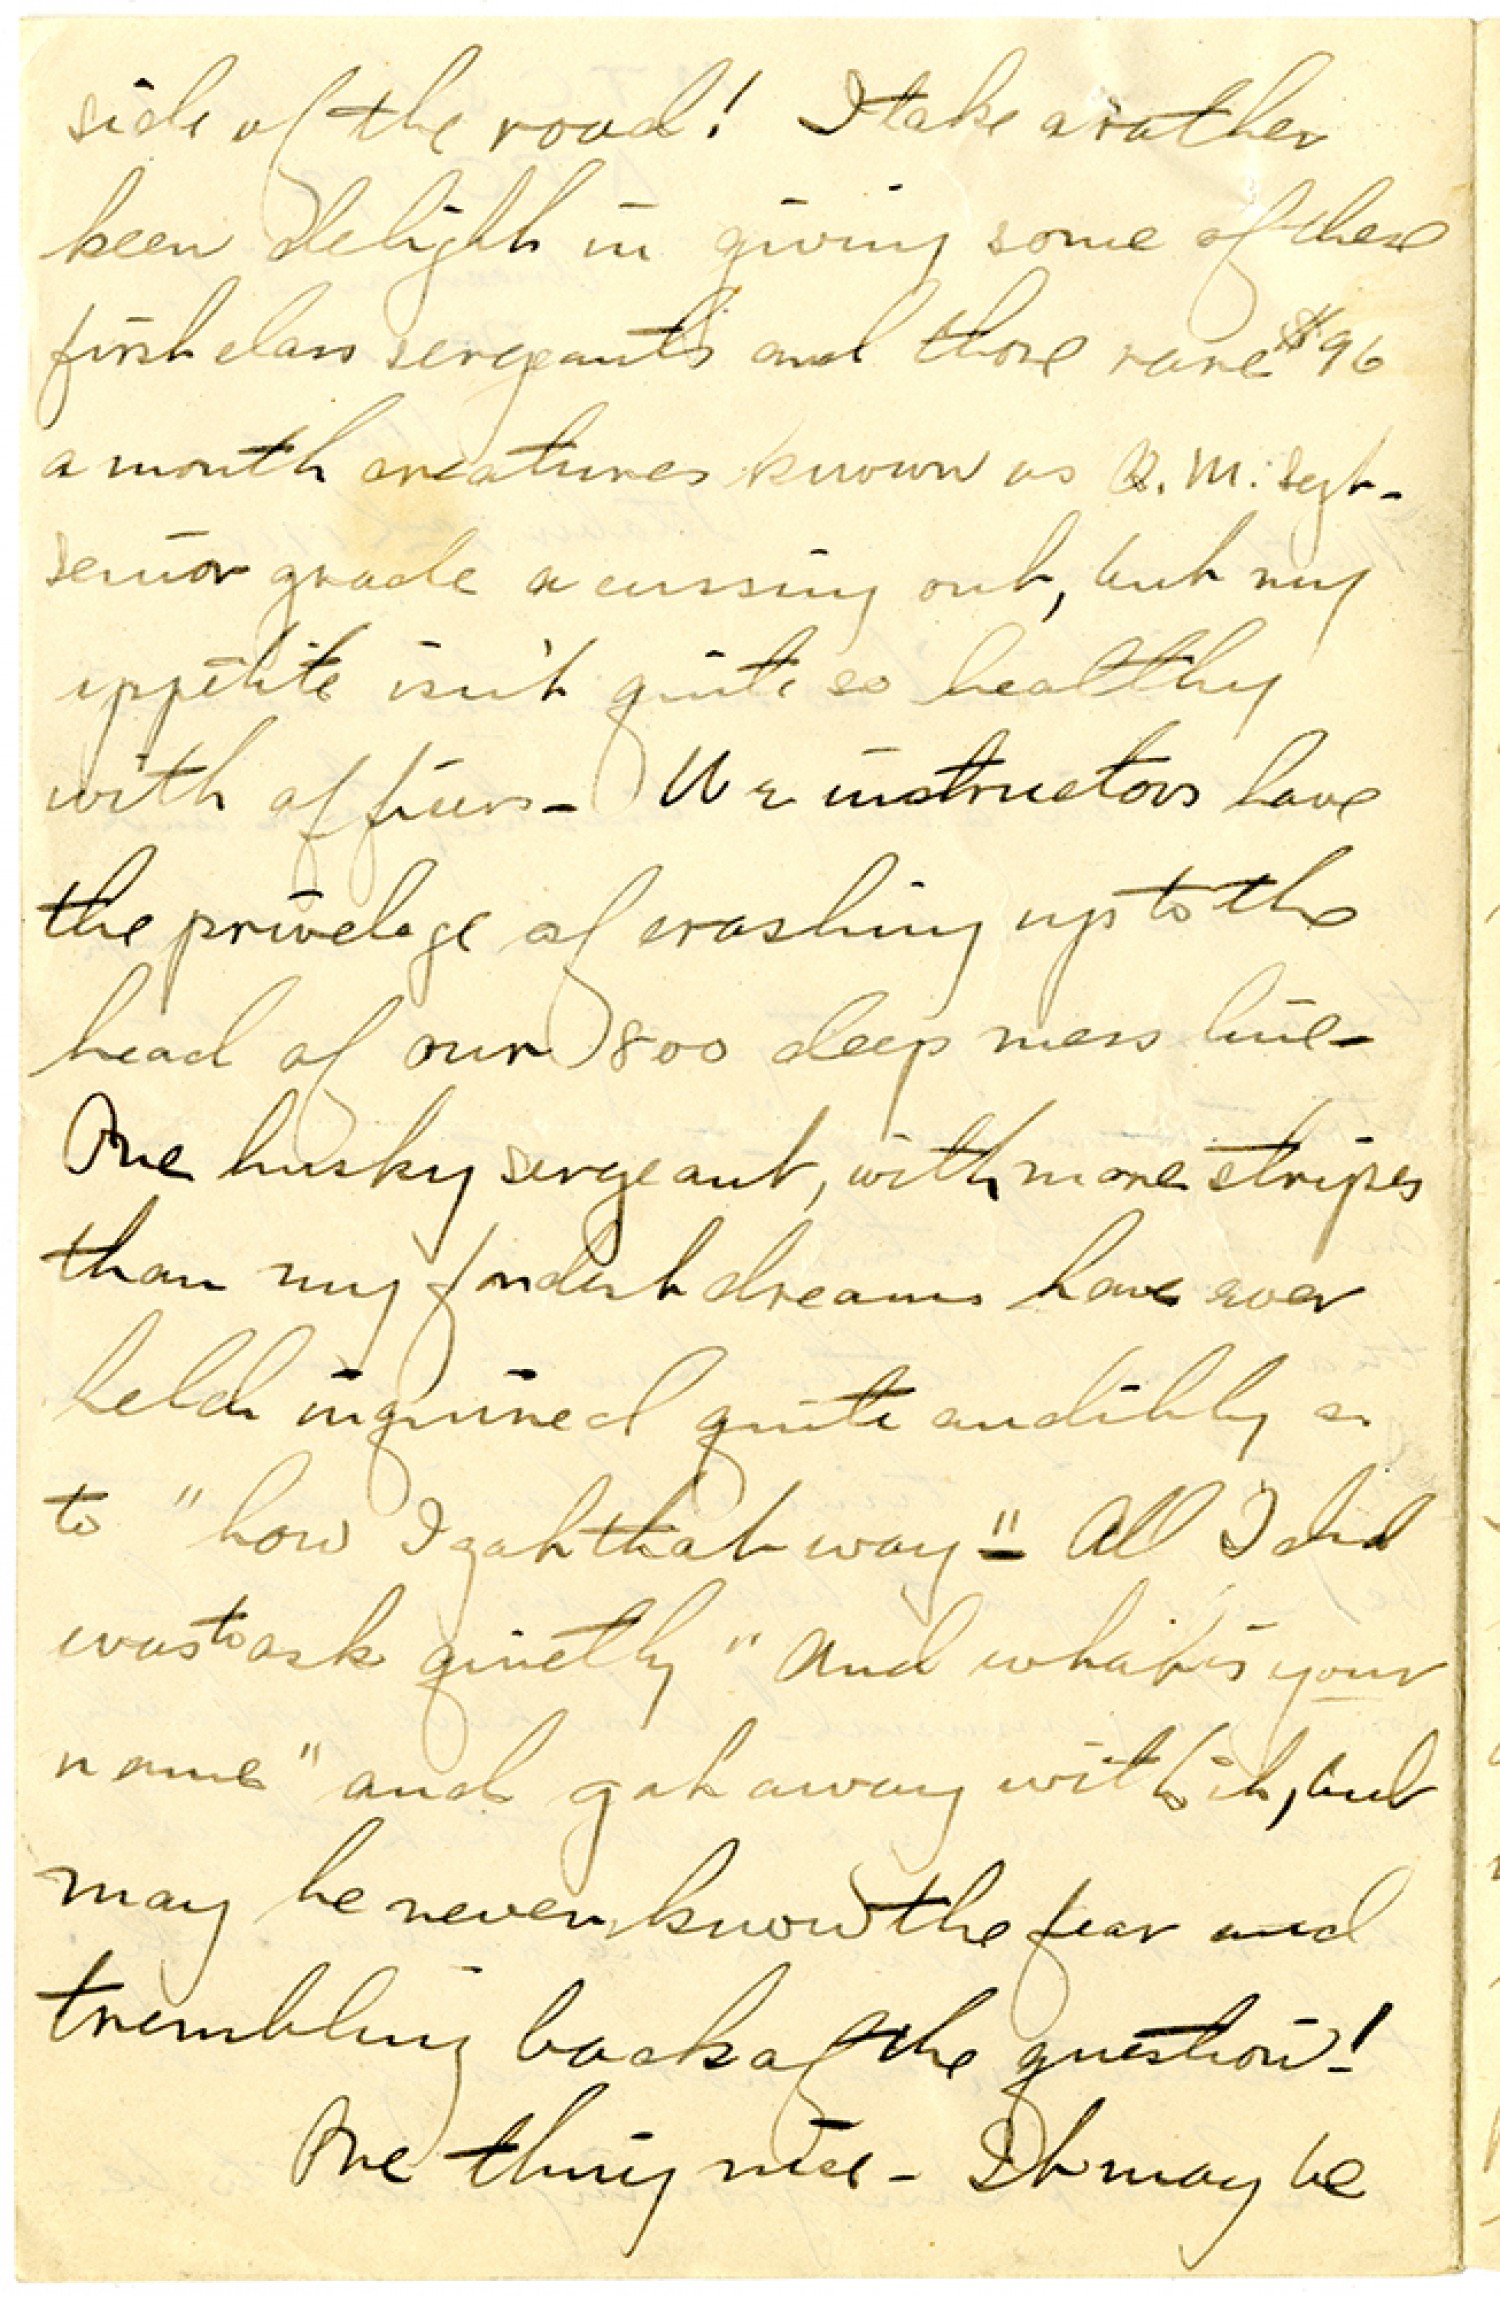 side of the road! I take a rather
keen delight in giving some of these
first class sergeants and those rare $96
a month creatures known as Q.M. Sgt-
senior grade a cussing out, but my
appetite isn't quite so healthy
with officers- We instructors have
the privelege of crashing up to the
head of our 800 deep mess line-
One husky sergeant, with more stripes
than my fondest dreams have ever
held inquired quite audibly as
to "how I got that way"- All I did
was to ask quietly "And what is your
name" and got away with it, but
may he never know the fear and
trembling back of the question!
One thing nice - It may be